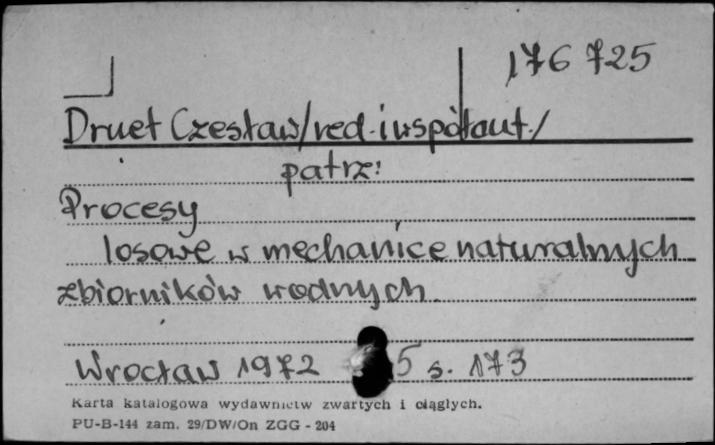 176 725
Druet Czesław/red. i współaut./
patrz:
Procesy
losowe w mechanice naturalnych
zbiorników wodnych
Wrocław 1972 5 s. 173
Karta katalogowa wydawnictw zwartych i ciągłych.
PU-B-144 zam. 29/DW/On ZGG - 204